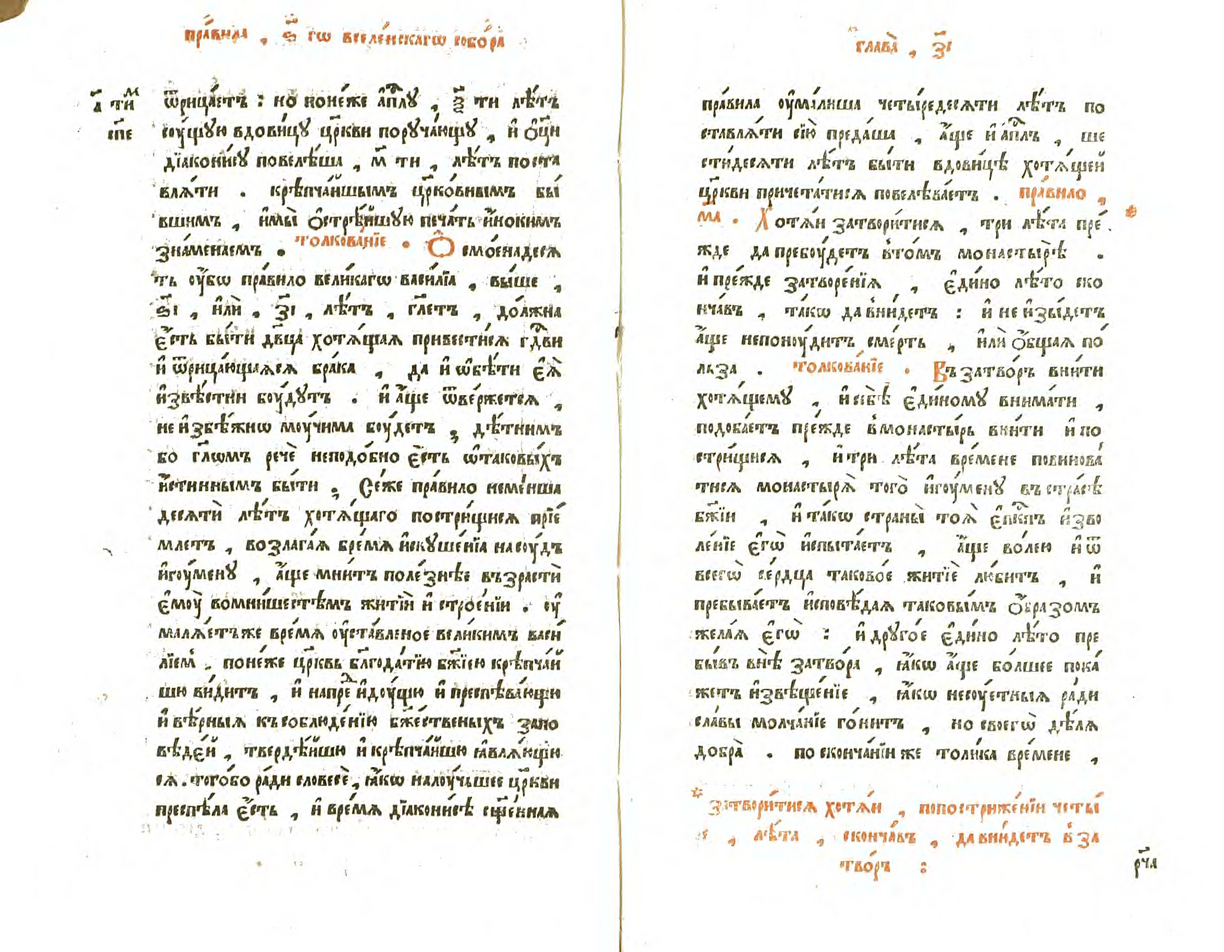 пра́вила , ѕ҃ гѡ вселе́нскагѡ собо́ра
а҃ ти́м
сп҃е
ѿрица́етъ : но поне́же а҆пⷭ҇лу , ѯ҃ ти лѣ́тъ
су́щую вдови́цу цр҃кви поруча́ющу , и҆ ѻ҆ц҃и
дїакони́су повелѣ́ша , м҃ ти , лѣ́тъ поста
вля́ти . крѣпча́йшымъ цр҃ко́внымъ бы́
вшимъ , и҆мы̀ ѻ҆стрѣ́йшую печа́ть и҆́нокимъ
зна́менаемъ . толкова́нїе . Ѻ҆смоена́деся
ть ᲂу҆́бѡ пра́вило вели́кагѡ васи́лїа , вы́ше ,
ѕ҃і , и҆лѝ , з҃і , лѣ́тъ , гл҃етъ , до́лжна
є҆́сть бы́ти дв҃ца хотѧ́щаѧ привести́сѧ гдⷭ҇ви
и҆ ѿрица́ющаѧсѧ бра́ка , да и҆ ѡ҆бѣ́ти є҆ѧ̀
и҆звѣ́стни бу́дутъ . и҆ а҆́ще ѿве́ржетсѧ ,
не и҆збѣ́жнѡ му́чима бу́детъ ; дѣ́тнимъ
бо гл҃омъ речѐ неподо́бно є҆́сть ѡ҆ таковы́хъ
и҆́стиннымъ бы́ти ; Се́же пра́вило неме́нша
десѧтѝ лѣ́тъ хотѧ́щаго постри́щисѧ прїе́
млетъ , возлага́ѧ бре́мѧ и҆скуше́нїа на су́дъ
и҆гу́мену , а҆́ще мни́тъ поле́знѣе възрасти́
є҆му̀ во мни́шестѣмъ житїѝ и҆ строе́нїи . ᲂу҆
малѧ́етъ же вре́мѧ ᲂу҆ста́вленое вели́кимъ васи́
лїемъ . поне́же цр҃ковь блгⷣтїю бж҃їею крѣпча́й
шю ви́дитъ , и҆ напре́дъ и҆ду́щю и҆ преспѣва́ющю
и҆ вѣ́рныѧ къ соблюде́нїю бж҃е́ственыхъ за́по
вѣде́й , тверде́йшю и҆ крѣпча́йшю ꙗ҆влѧ́ющю
сѧ . того́ бо ра́ди словесѐ , ꙗ҆́кѡ на лу́чьшее цр҃кви
преспѣ́ла є҆́сть , и҆ вре́мѧ дїакони́сѣ сщ҃е́ннаѧ
глава̀ , з҃і
пра́вила ᲂу҆ма́лиша четы́редесѧти лѣ́тъ по
ставлѧ́ти сїю̀ преда́ша , а҆́ще и҆ а҆пⷭ҇лъ , ше
сти́десѧти лѣ́тъ бы́ти вдови́цѣ хотѧ́щей
цр҃кви причета́тисѧ повелѣва́етъ . пра́вило ,
м҃а . Хотѧ́й затвори́тисѧ , три лѣ́та пре́ . *
жде да пребу́детъ в҆ то́мъ монастырѣ̀ .
и҆ пре́жде затворе́нїѧ , є҆ди́но лѣ́то ско
нча́въ , та́кѡ да вни́детъ : и҆ не и҆зы́детъ
а҆́ще не пону́дитъ сме́рть , и҆лѝ ѻ҆́бщаѧ по́
льза . толкова́нїе . Въ затво́ръ вни́ти
хотѧ́щему , и҆ себѣ̀ є҆ди́ному внима́ти ,
подоба́етъ пре́жде в҆ монасты́рь вни́ти и҆ по
стри́щисѧ , и҆ три лѣ́та вре́мене повинова́
тисѧ монастырѧ̀ того̀ и҆гу́мену въ стра́сѣ
бж҃їи , и҆ та́кѡ страны̀ тоѧ̀ є҆пⷭ҇кпъ и҆зво
ле́нїе є҆гѡ̀ и҆спыта́етъ , а҆́ще во́лею и҆ ѿ
всегѡ̀ се́рдца таково́е житїѐ лю́битъ , и҆
пребыва́етъ и҆сповѣ́даѧ таковы́мъ ѻ҆́бразомъ
жела́ѧ є҆гѡ̀ : и҆ друго́е є҆ди́но лѣ́то пре
бы́въ внѣ̀ затво́ра , ꙗ҆́кѡ а҆́ще бо́лшее пока́
жетъ и҆звѣще́нїе , ꙗ҆́кѡ несу́етныѧ ра́ди
сла́вы молча́нїе го́нитъ , но своегѡ̀ дѣ́лѧ
добра̀ . по сконча́нїи же толи́ка вре́мене ,
* затвори́тисѧ хотѧ́й , по постриже́нїи четы́
ре , лѣ́та , сконча́въ , да вни́детъ в҆ за
тво́ръ :
рч҃а